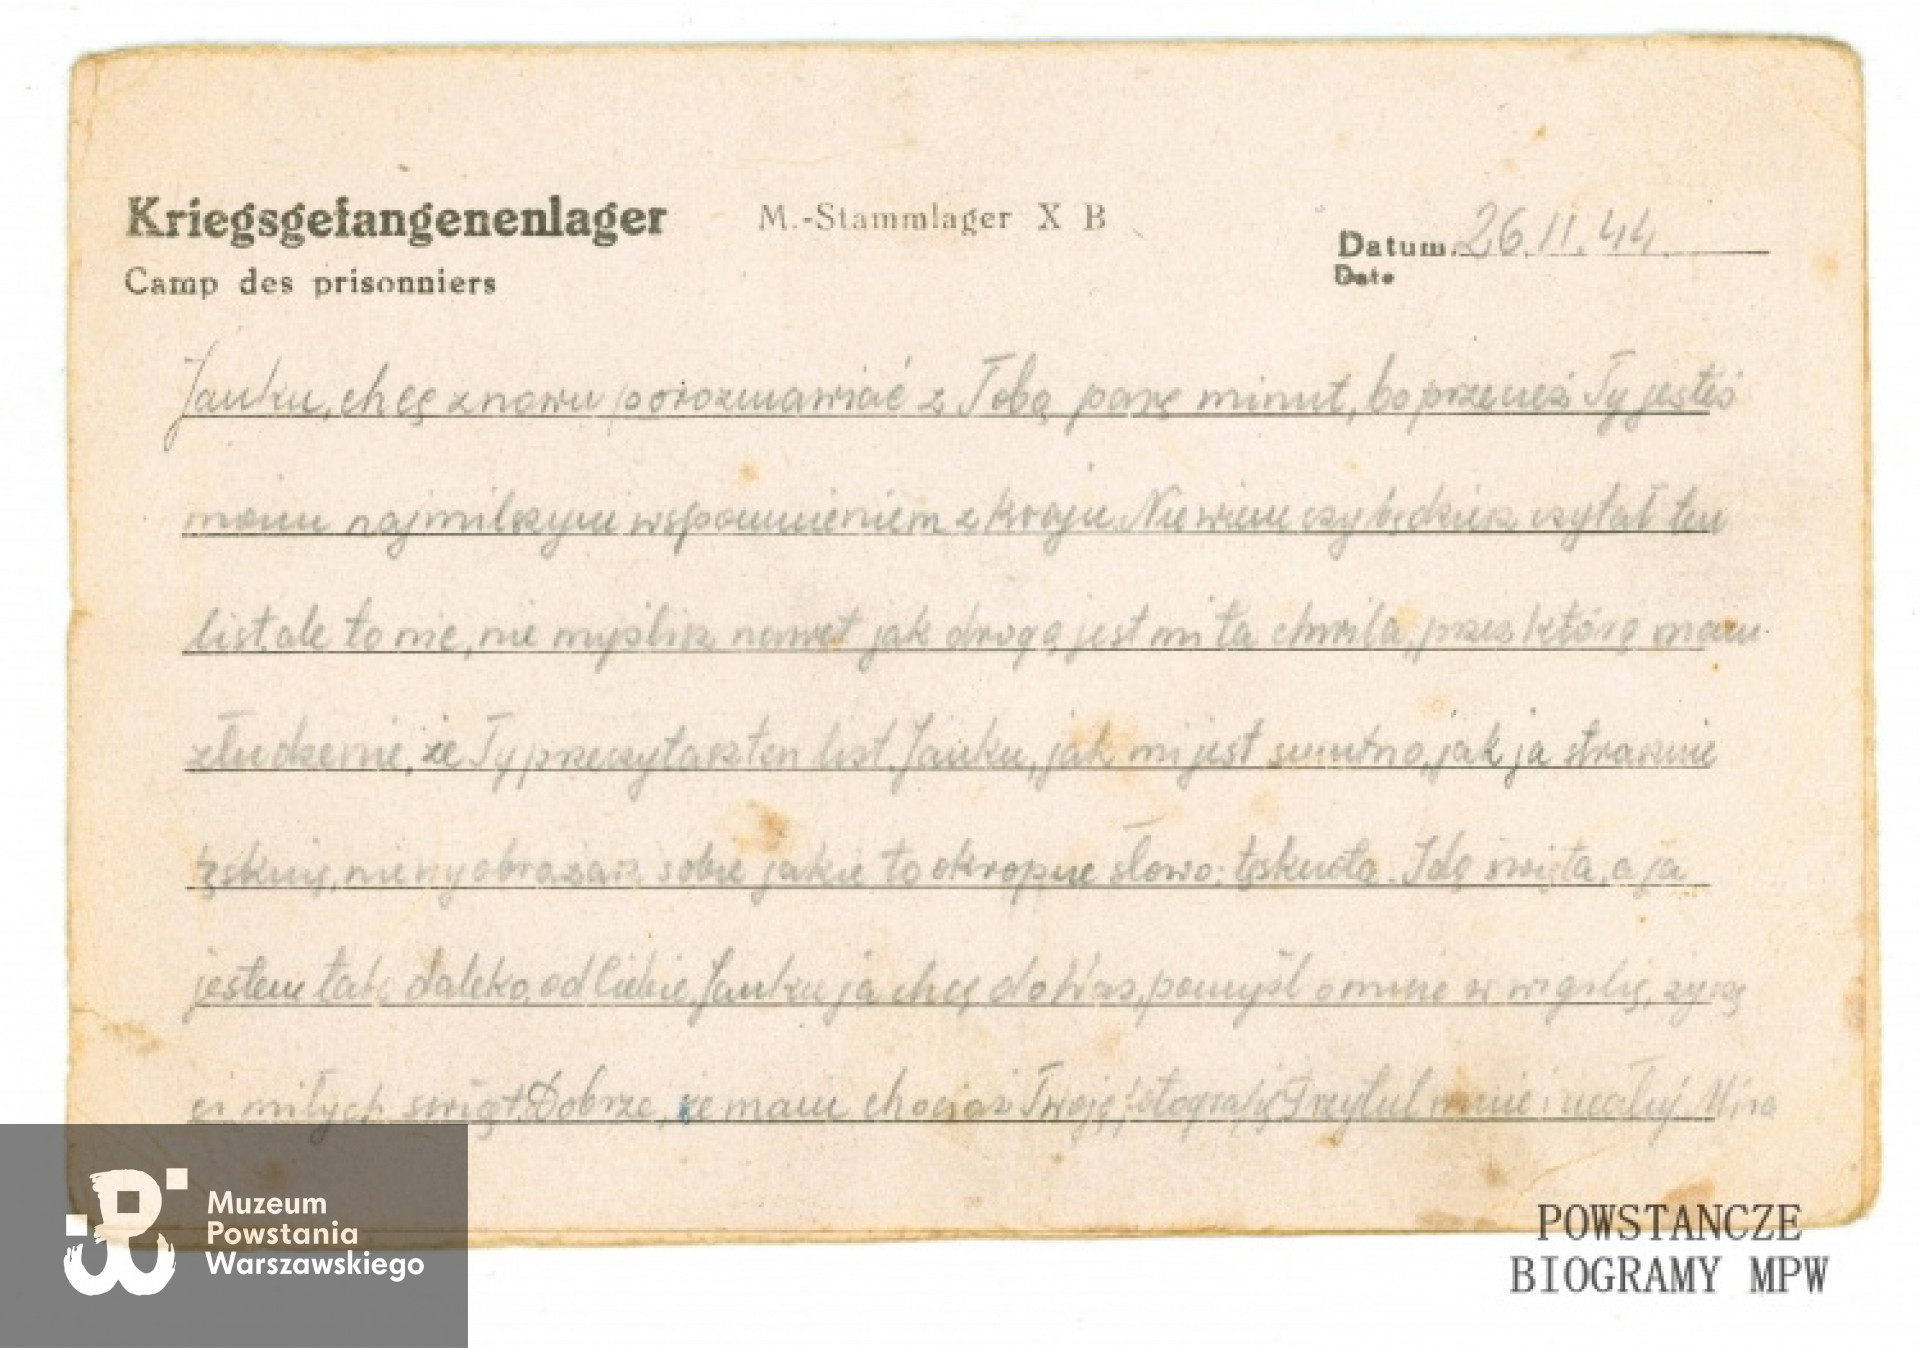 Kriegsgefangenenlager M.-Stammlager X B
Datum 26.11.44.
Camp des prisonniers
Date
Janku, chcę znowu porozmawiać z Tobą parę minut, bo przecież Ty jesteś
moim najmilszym wspomnieniem z kraju. Nie wiem czy będziesz czytał ten
list ale to nic, nie myślisz nawet jak drogą jest mi ta chwila, przez którą mam
złudzenie, że Ty przeczytasz ten list. Janku, jak mi jest smutno, jak ja strasznie
tęsknię, nie wyobrażasz sobie jakie to okropne słowo: tęsknota. Idą święta, a ja
jestem tak daleko, od Ciebie, Janku ja chcę do Was, pomyśl o mnie w wigilię, życzę
ci miłych świąt. Dobrze, że mam chociaż Twoją fotografię. Przytul mnie i ucałuj. Mira
Muzeum
Powstania
Warszawskiego
POWSTAŃCZE
BIOGRAMY MPW